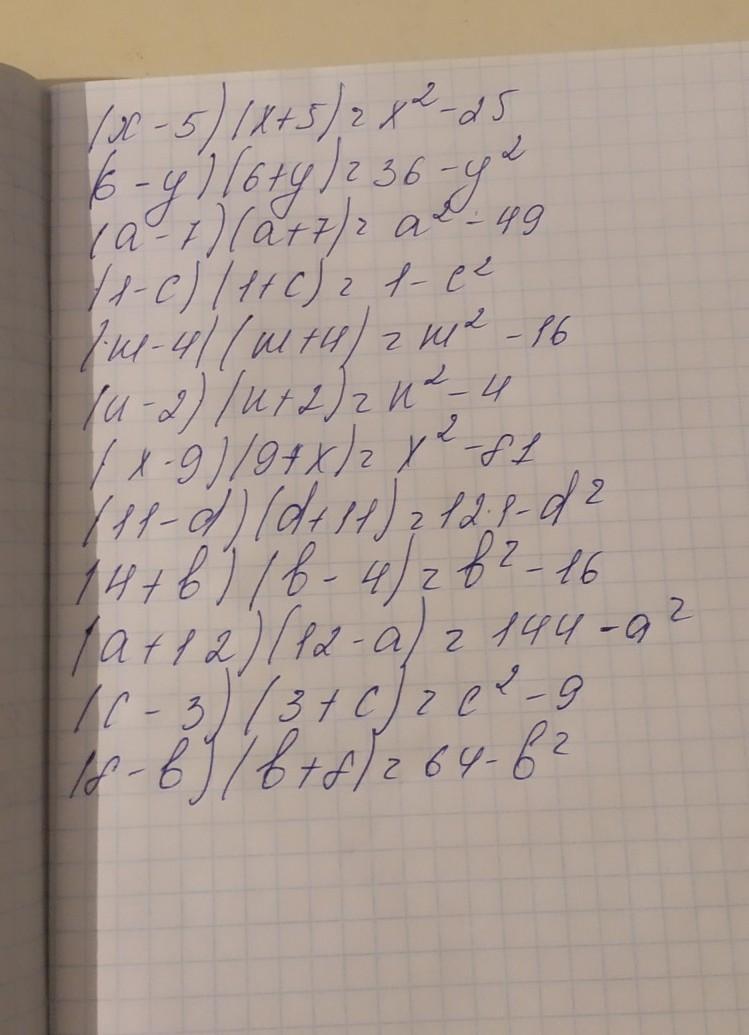 (x-5)(x+5)=x²-25
(6-y)(6+y)=36-y²
(a-7)(a+7)=a²-49
(1-c)(1+c)=1-c²
(m-4)(m+4)=m²-16
(n-2)(n+2)=n²-4
(x-9)(9+x)=x²-81
(11-d)(d+11)=121-d²
(4+b)(b-4)=b²-16
(a+12)(12-a)=144-a²
(c-3)(3+c)=c²-9
(8-b)(b+8)=64-b²